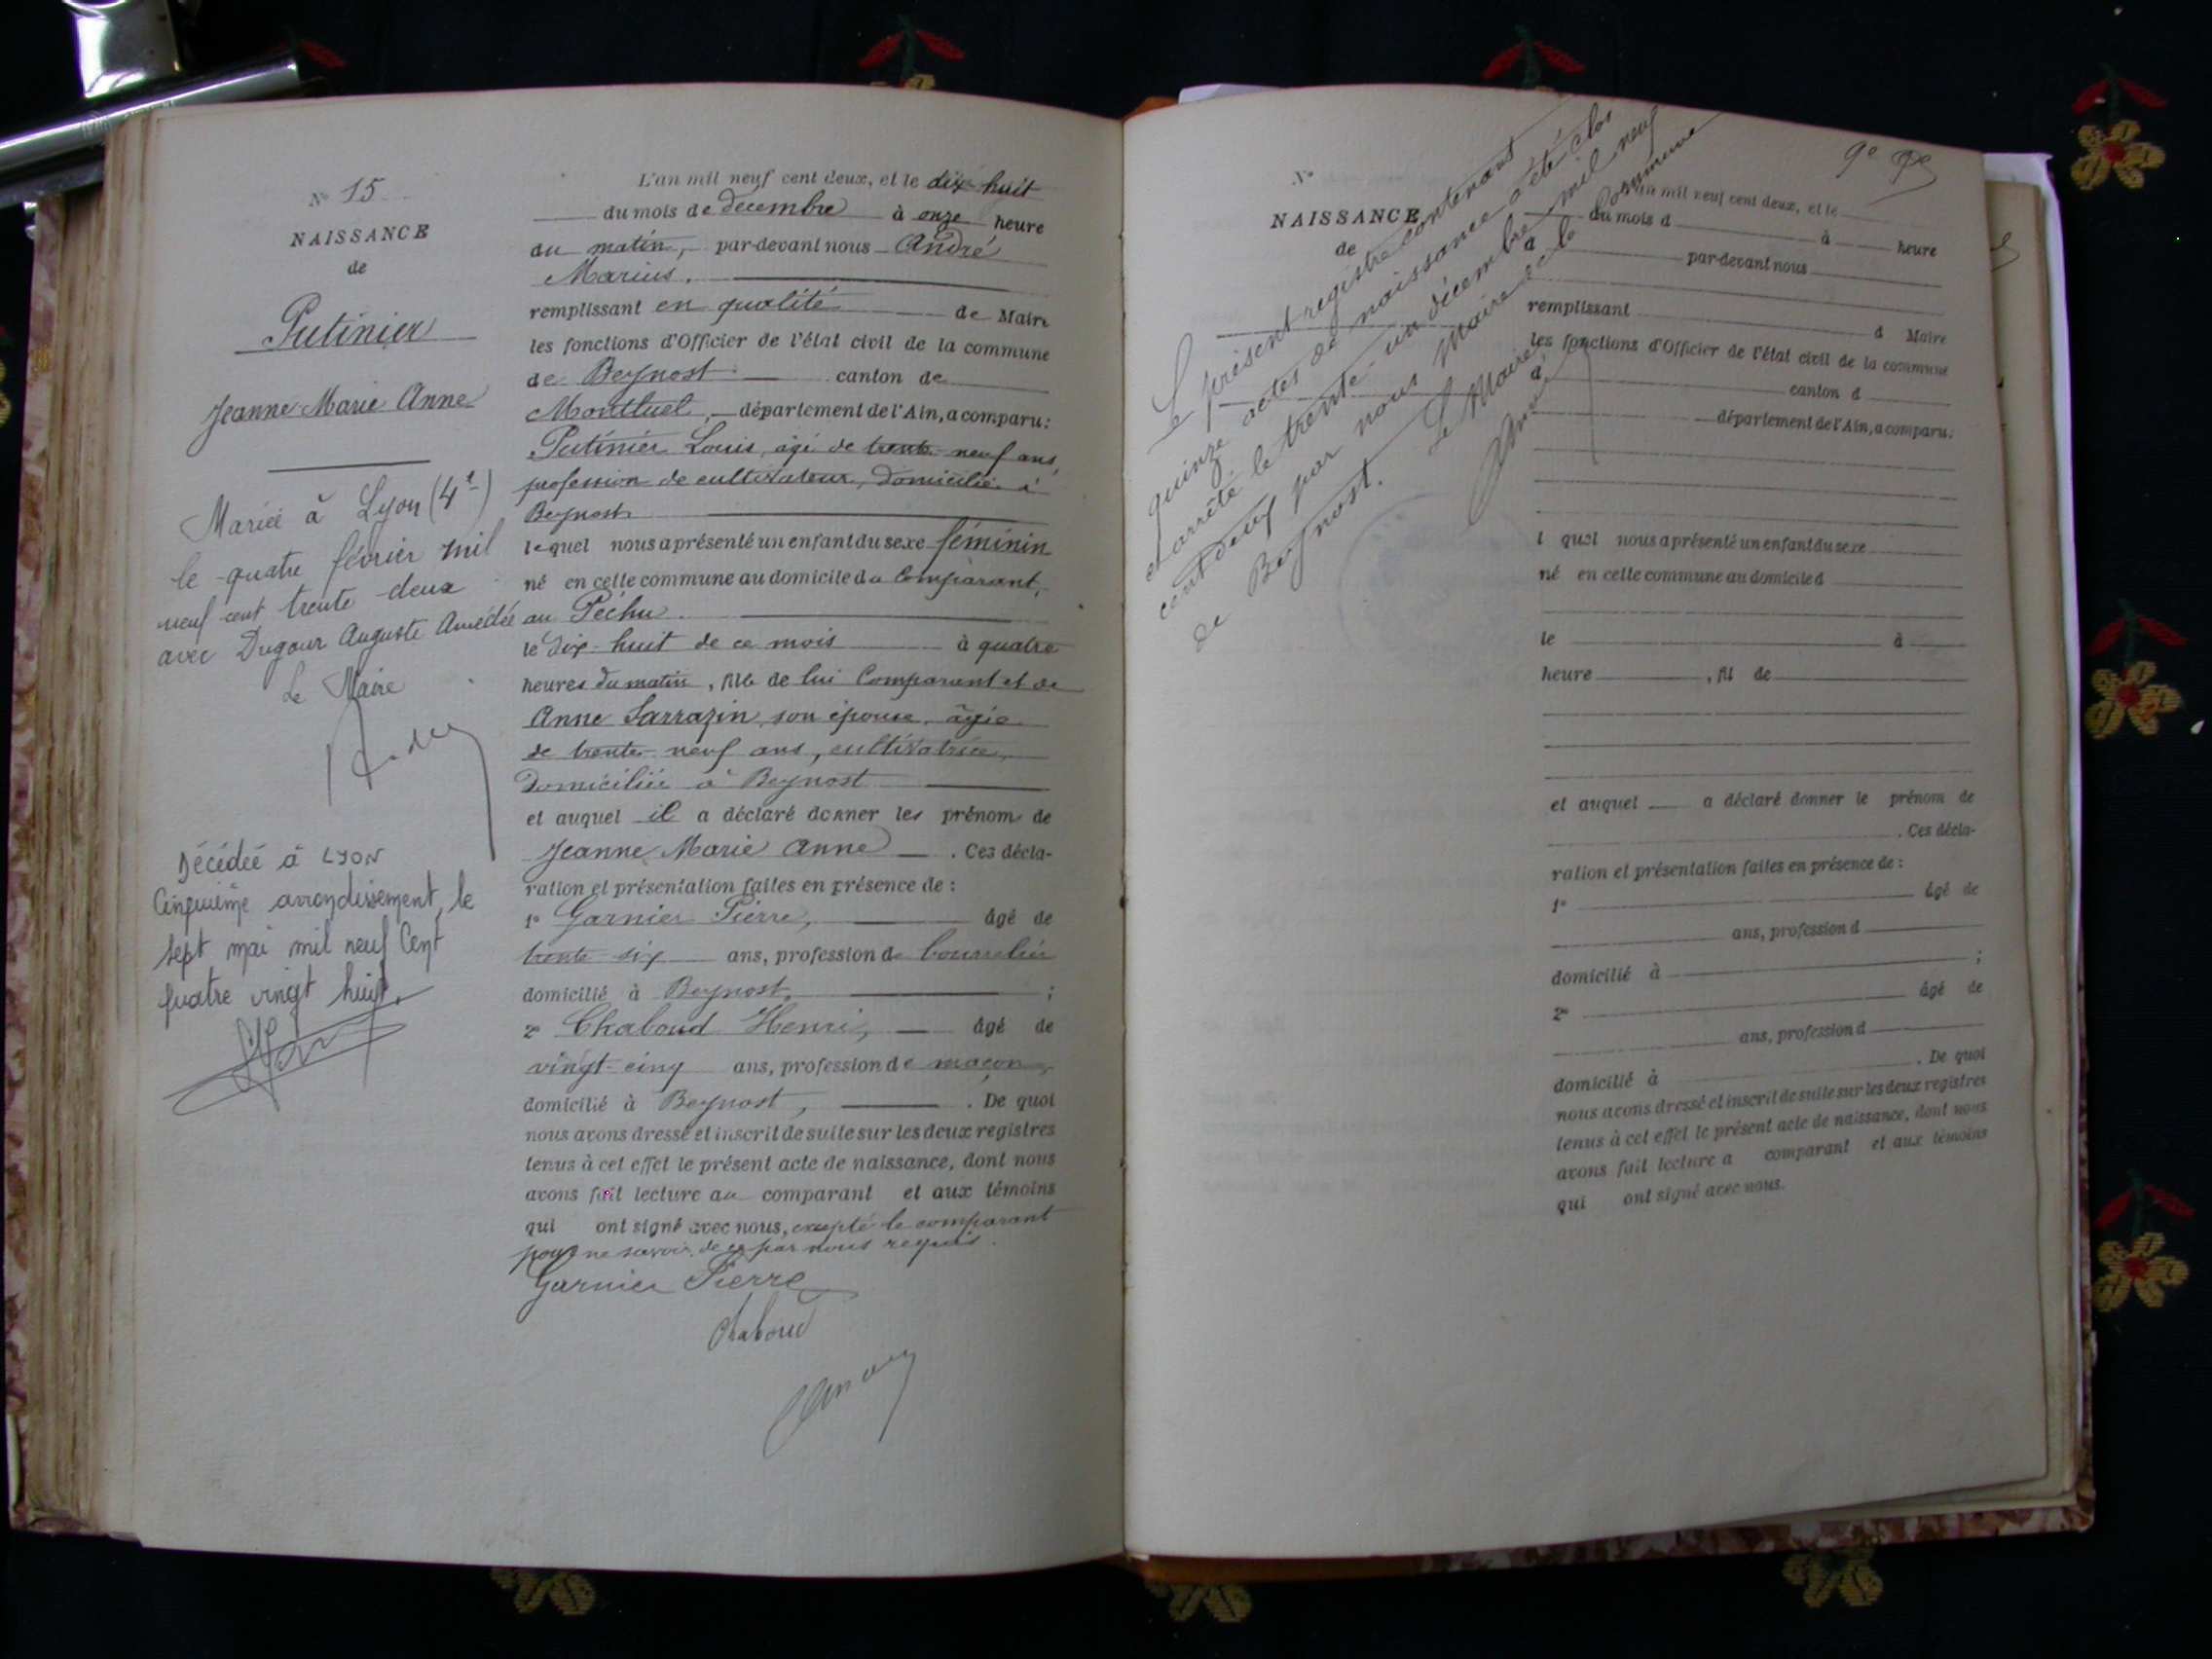 N° 15
NAISSANCE
de
Putinier
Jeanne Marie Anne
Mariée à Lyon (4e)
le quatre février mil
neuf cent trente deux
avec Dugour Auguste Amédée
Le Maire
Décédée à LYON
Cinquième arrondissement, le
sept mai mil neuf Cent
quatre vingt huit.
L'an mil neuf cent deux, et le dix-huit
du mois de décembre à onze heure
du matin, par-devant nous André
Marius.
remplissant en qualité de Maire
les fonctions d'Officier de l'état civil de la commune
de Beynost canton de
Montluel, département de l'Ain, a comparu:
Putinier Louis, âgé de trente-neuf ans,
profession de cultivateur, domicilié à
Beynost
lequel nous a présenté un enfant du sexe féminin
né en cette commune au domicile du Comparant,
au Péchu
le dix-huit de ce mois à quatre
heures du matin, fille de lui Comparant et de
Anne Sarrazin, son épouse, âgée
de trente-neuf ans, cultivatrice,
domiciliée à Beynost
et auquel il a déclaré donner les prénoms de
Jeanne Marie Anne. Ces décla-
ration et présentation faites en présence de :
1° Garnier Pierre, âgé de
trente-six ans, profession de bourrelier
domicilié à Beynost, ;
2° Chaboud Henri, âgé de
vingt-cinq ans, profession de maçon,
domicilié à Beynost, . De quoi
nous avons dressé et inscrit de suite sur les deux registres
tenus à cet effet le présent acte de naissance, dont nous
avons fait lecture au comparant et aux témoins
qui ont signé avec nous, excepté le comparant
pour ne savoir, de ce par nous requis.
Garnier Pierre
Chaboud
André
9e
N°
NAISSANCE
de
Le présent registre contenant
quinze actes de naissance a été clos
et arrêté le trente-un décembre mil neuf
cent deux par nous Maire de la Commune
de Beynost.
Le Maire
André
L'an mil neuf cent deux, et le
du mois d à heure
d par-devant nous
remplissant d Maire
les fonctions d'Officier de l'état civil de la commune
d canton d
département de l'Ain, a comparu:
l quel nous a présenté un enfant du sexe
né en cette commune au domicile d
le à
heure , fil de
et auquel a déclaré donner le prénom de
. Ces décla-
ration et présentation faites en présence de :
1° âgé de
ans, profession d
domicilié à ;
2° âgé de
ans, profession d
domicilié à . De quoi
nous avons dressé et inscrit de suite sur les deux registres
tenus à cet effet le présent acte de naissance, dont nous
avons fait lecture a comparant et aux témoins
qui ont signé avec nous.